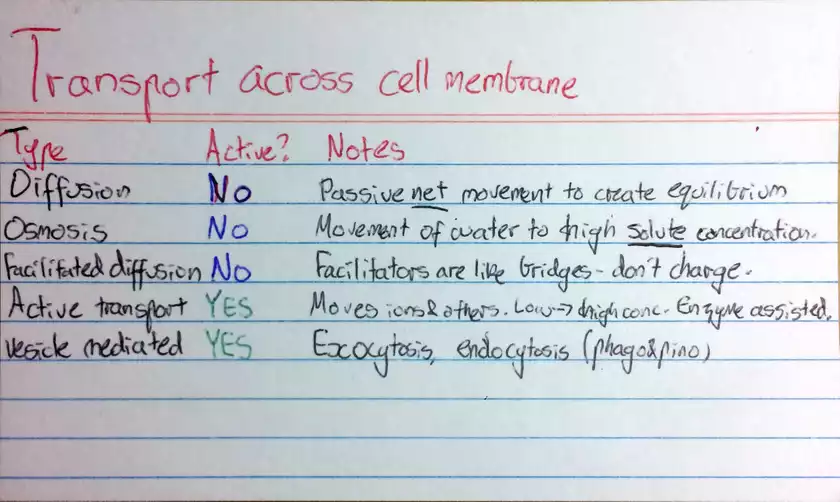 Transport across cell membrane
Type Active? Notes
Diffusion No Passive net movement to create equilibrium
Osmosis No Movement of water to high solute concentration.
Facilitated diffusion No Facilitators are like bridges - don't charge.
Active transport YES Moves ions & others. Low -> high conc. Enzyme assisted.
vesicle mediated YES Exocytosis, endocytosis (phago & pino)